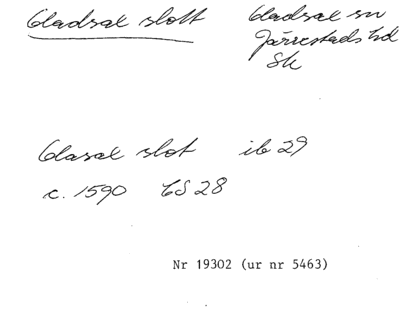 Gladsax slott
Gladsax sn
Järrestads hd
Sk
Glasax slot ib 29
c. 1590 CS 28
Nr 19302 (ur nr 5463)